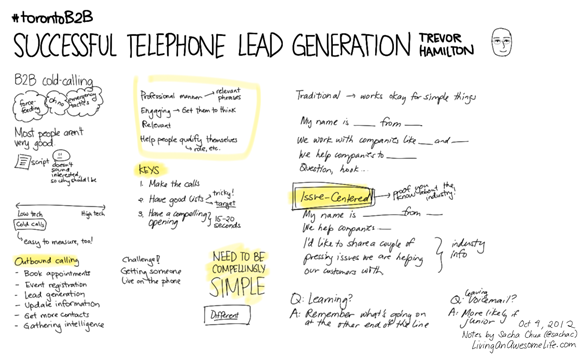 #torontoB2B
SUCCESSFUL TELEPHONE LEAD GENERATION
TREVOR
HAMILTON
B2B cold-calling
force-
feeding
Oh no
emergency
tactics
Most people aren't
very good
script
doesn't
sound
interested,
so why should I be
Low tech
High tech
Cold calls
easy to measure, too!
Outbound calling
- Book appointments
- Event registration
- Lead generation
- Update information
- Get more contacts
- Gathering intelligence
Professional manner → relevant
phrases
Engaging → Get them to think
Relevant
Help people qualify themselves
role, etc.
KEYS
1. Make the calls
2. Have good lists
tricky!
target
3. Have a compelling
opening
15-20
seconds
Challenge!
Getting someone
live on the phone
NEED TO BE
COMPELLINGLY
SIMPLE
Different
Traditional → works okay for simple things
My name is ___ from ___
We work with companies like ___ and ___
We help companies to ___
Question, hook...
Issue-Centered
proof you
know about the
industry
My name is ___ from ___
We help companies ___
I'd like to share a couple of
pressing issues we are helping
our customers with
industry
info
Q: Learning?
A: Remember what's going on
at the other end of the line
Leaving
Q: Voicemail?
A: More likely if
junior
Oct 4, 2012
Notes by Sacha Chua (@sachac)
LivingAnAwesomeLife.com